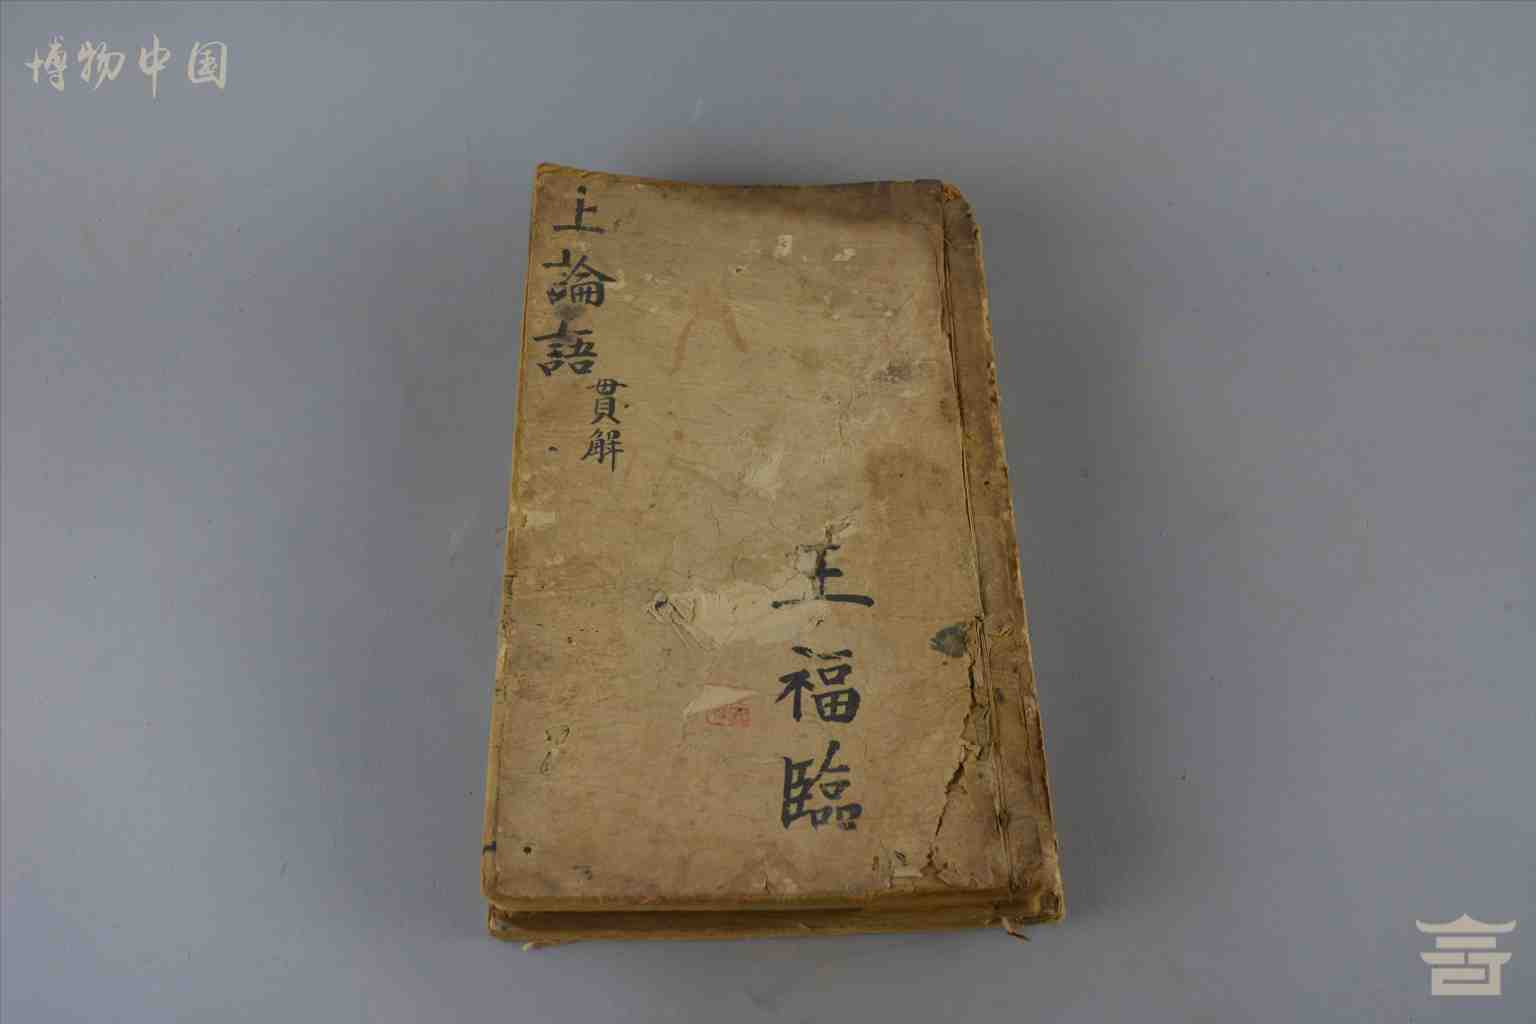 博物中国
上論語
貫解
王福臨